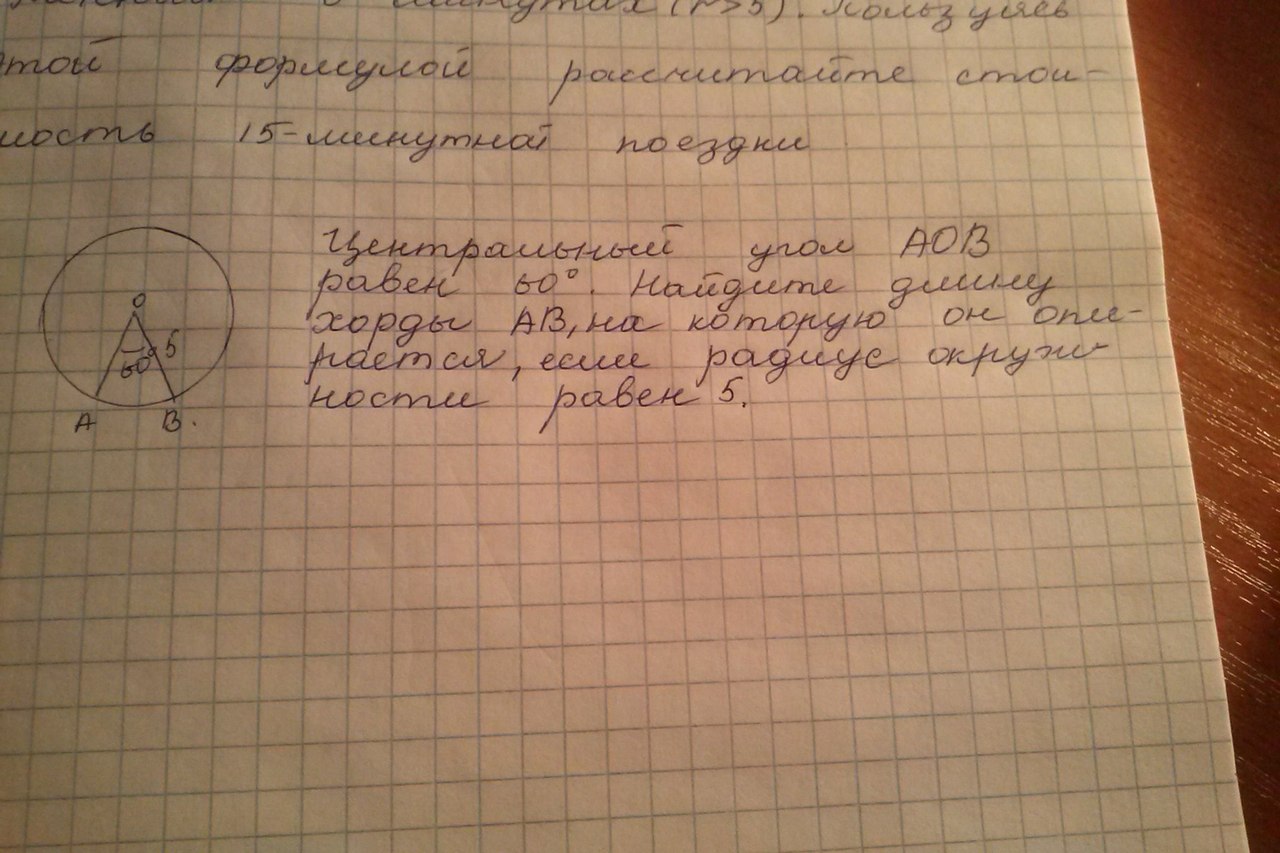 в минутах (t>5). Пользуясь
этой формулой рассчитайте стои-
мость 15-минутной поездки
Центральный угол АОВ
равен 60°. Найдите длину
хорды АВ, на которую он опи-
рается, если радиус окруж-
ности равен 5.
О
5
60°
А В.